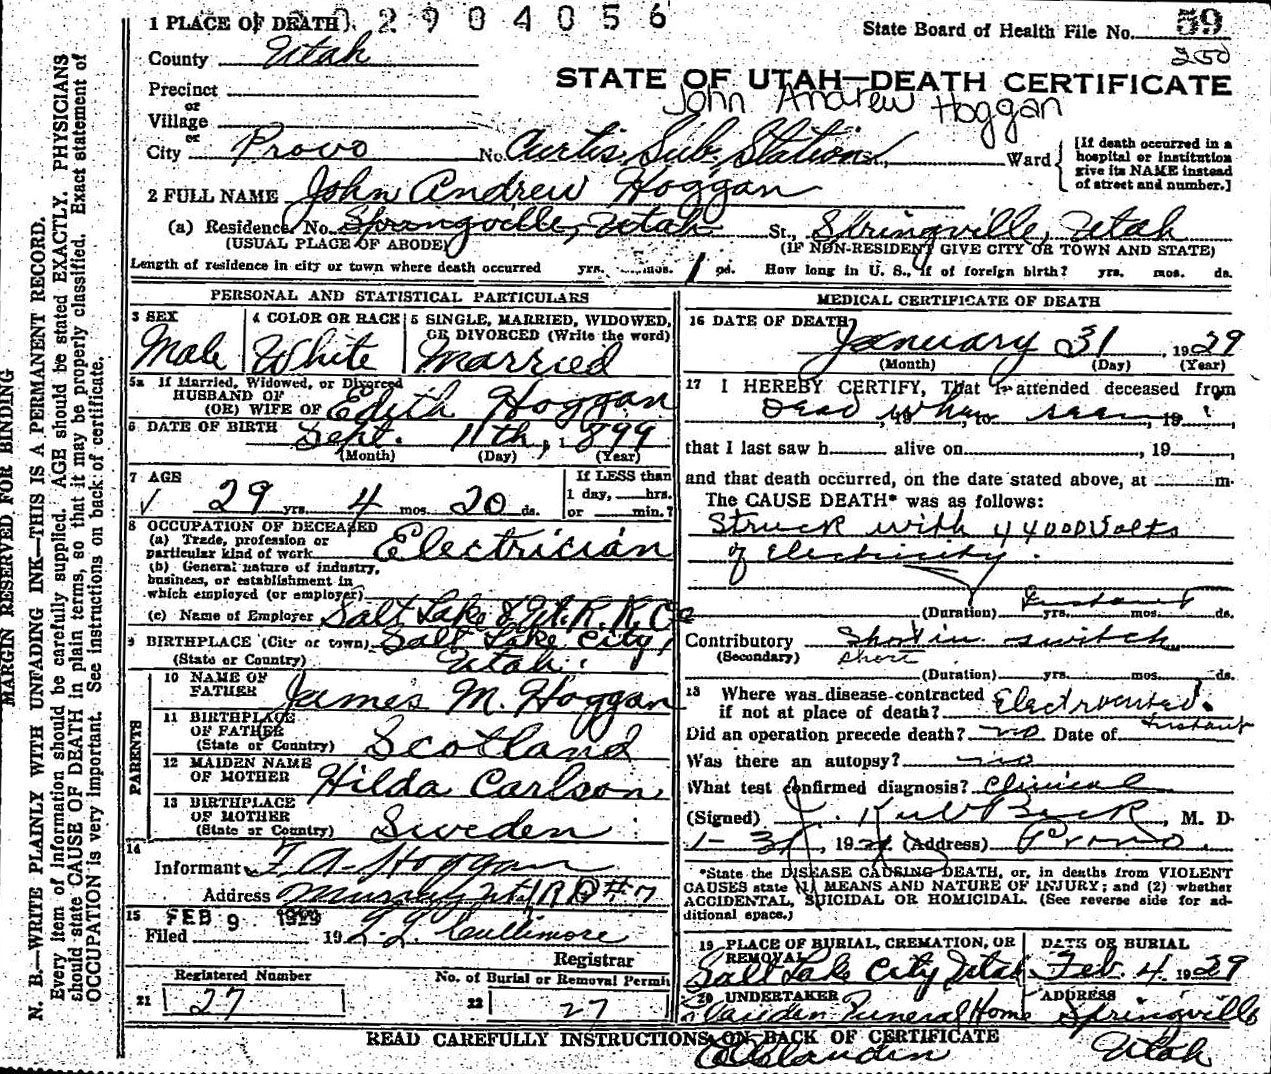 2904056
1 PLACE OF DEATH
State Board of Health File No. 59
250
County Utah
STATE OF UTAH—DEATH CERTIFICATE
John Andrew Hoggan
Precinct
or
Village
or
City Provo No. Curtis Sub. Station Ward
[If death occurred in a hospital or institution give its NAME instead of street and number.]
2 FULL NAME John Andrew Hoggan
(a) Residence. No. Springville, Utah St., Springville, Utah
(USUAL PLACE OF ABODE) (IF NON-RESIDENT GIVE CITY OR TOWN AND STATE)
Length of residence in city or town where death occurred yrs. mos. 1 ds. How long in U. S., if of foreign birth? yrs. mos. ds.
PERSONAL AND STATISTICAL PARTICULARS
3 SEX 4 COLOR OR RACE 5 SINGLE, MARRIED, WIDOWED, OR DIVORCED (Write the word)
Male White Married
5a If Married, Widowed, or Divorced
HUSBAND OF
(OR) WIFE OF Edith Hoggan
6 DATE OF BIRTH Sept. 11th, 1899
(Month) (Day) (Year)
7 AGE If LESS than
29 yrs. 4 mos. 20 ds. 1 day, hrs.
or min.?
8 OCCUPATION OF DECEASED
(a) Trade, profession or
particular kind of work Electrician
(b) General nature of industry,
business, or establishment in
which employed (or employer)
(c) Name of Employer Salt Lake & Ut. R. R. Co
9 BIRTHPLACE (City or town) Salt Lake City,
(State or Country) Utah.
PARENTS
10 NAME OF
FATHER James M. Hoggan
11 BIRTHPLACE
OF FATHER
(State or Country) Scotland
12 MAIDEN NAME
OF MOTHER Hilda Carlson
13 BIRTHPLACE
OF MOTHER
(State or Country) Sweden
14
Informant F. A. Hoggan
Address Murray Ut R D #7
15 FEB 9 1929
Filed 19 L. L. Cullimore
Registrar
Registered Number No. of Burial or Removal Permit
21 27 22 27
MEDICAL CERTIFICATE OF DEATH
16 DATE OF DEATH
January 31, 1929
(Month) (Day) (Year)
17 I HEREBY CERTIFY, That I attended deceased from
Dead when seen, 19
that I last saw h alive on , 19
and that death occurred, on the date stated above, at m.
The CAUSE DEATH* was as follows:
Struck with 44000 Volts
of Electricity.
(Duration) Instant yrs. mos. ds.
Contributory Short in switch
(Secondary) short
(Duration) yrs. mos. ds.
18 Where was disease contracted
if not at place of death? Electrocuted.
Instant
Did an operation precede death? no Date of
Was there an autopsy? no
What test confirmed diagnosis? Clinical
(Signed) J. Karl Beck, M. D.
1-31, 1929 (Address) Provo.
*State the DISEASE CAUSING DEATH, or, in deaths from VIOLENT
CAUSES state (1) MEANS AND NATURE OF INJURY; and (2) whether
ACCIDENTAL, SUICIDAL OR HOMICIDAL. (See reverse side for ad-
ditional space.)
19 PLACE OF BURIAL, CREMATION, OR REMOVAL DATE OF BURIAL
Salt Lake City Utah Feb. 4, 1929
20 UNDERTAKER ADDRESS
Funeral Home Springville
Utah
READ CAREFULLY INSTRUCTIONS ON BACK OF CERTIFICATE
MARGIN RESERVED FOR BINDING
N. B.—WRITE PLAINLY WITH UNFADING INK—THIS IS A PERMANENT RECORD.
Every item of information should be carefully supplied. AGE should be stated EXACTLY. PHYSICIANS
should state CAUSE OF DEATH in plain terms, so that it may be properly classified. Exact statement of
OCCUPATION is very important. See instructions on back of certificate.